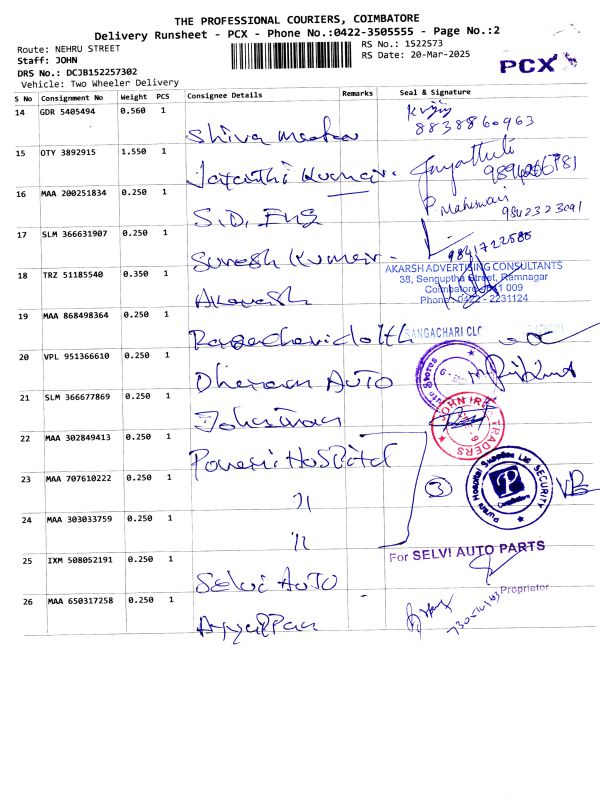 THE PROFESSIONAL COURIERS, COIMBATORE
Delivery Runsheet - PCX - Phone No.:0422-3505555 - Page No.:2
Route: NEHRU STREET
RS No.: 1522573
Staff: JOHN
RS Date: 20-Mar-2025
DRS No.: DCJB152257302
PCX
Vehicle: Two Wheeler Delivery
S No Consignment No Weight PCS Consignee Details Remarks Seal & Signature
14 GDR 5405494 0.560 1 Shiva
8838860963
15 OTY 3892915 1.550 1 Jayanthi Kumar.
16 MAA 200251834 0.250 1 S.D. Eng
P Maheswari
9842323091
17 SLM 366631907 0.250 1 Suresh Kumar
18 TRZ 51185540 0.350 1 Akarash
AKARSH ADVERTISING CONSULTANTS
38, Senguptha Street, Ramnagar
Coimbatore 641 009
Phone: 0422 - 2231124
19 MAA 868498364 0.250 1
RANGACHARI CLO
20 VPL 951366610 0.250 1 Dheran AUTO
21 SLM 366677869 0.250 1
JOHN TRADERS
22 MAA 302849413 0.250 1 Poneri HOSPital
23 MAA 707610222 0.250 1 "
3
Hospital Supplies Ltd SECURITY
24 MAA 303033759 0.250 1 "
25 IXM 508052191 0.250 1 Selvi AUTO
For SELVI AUTO PARTS
Proprietor
26 MAA 650317258 0.250 1 Ayyappan